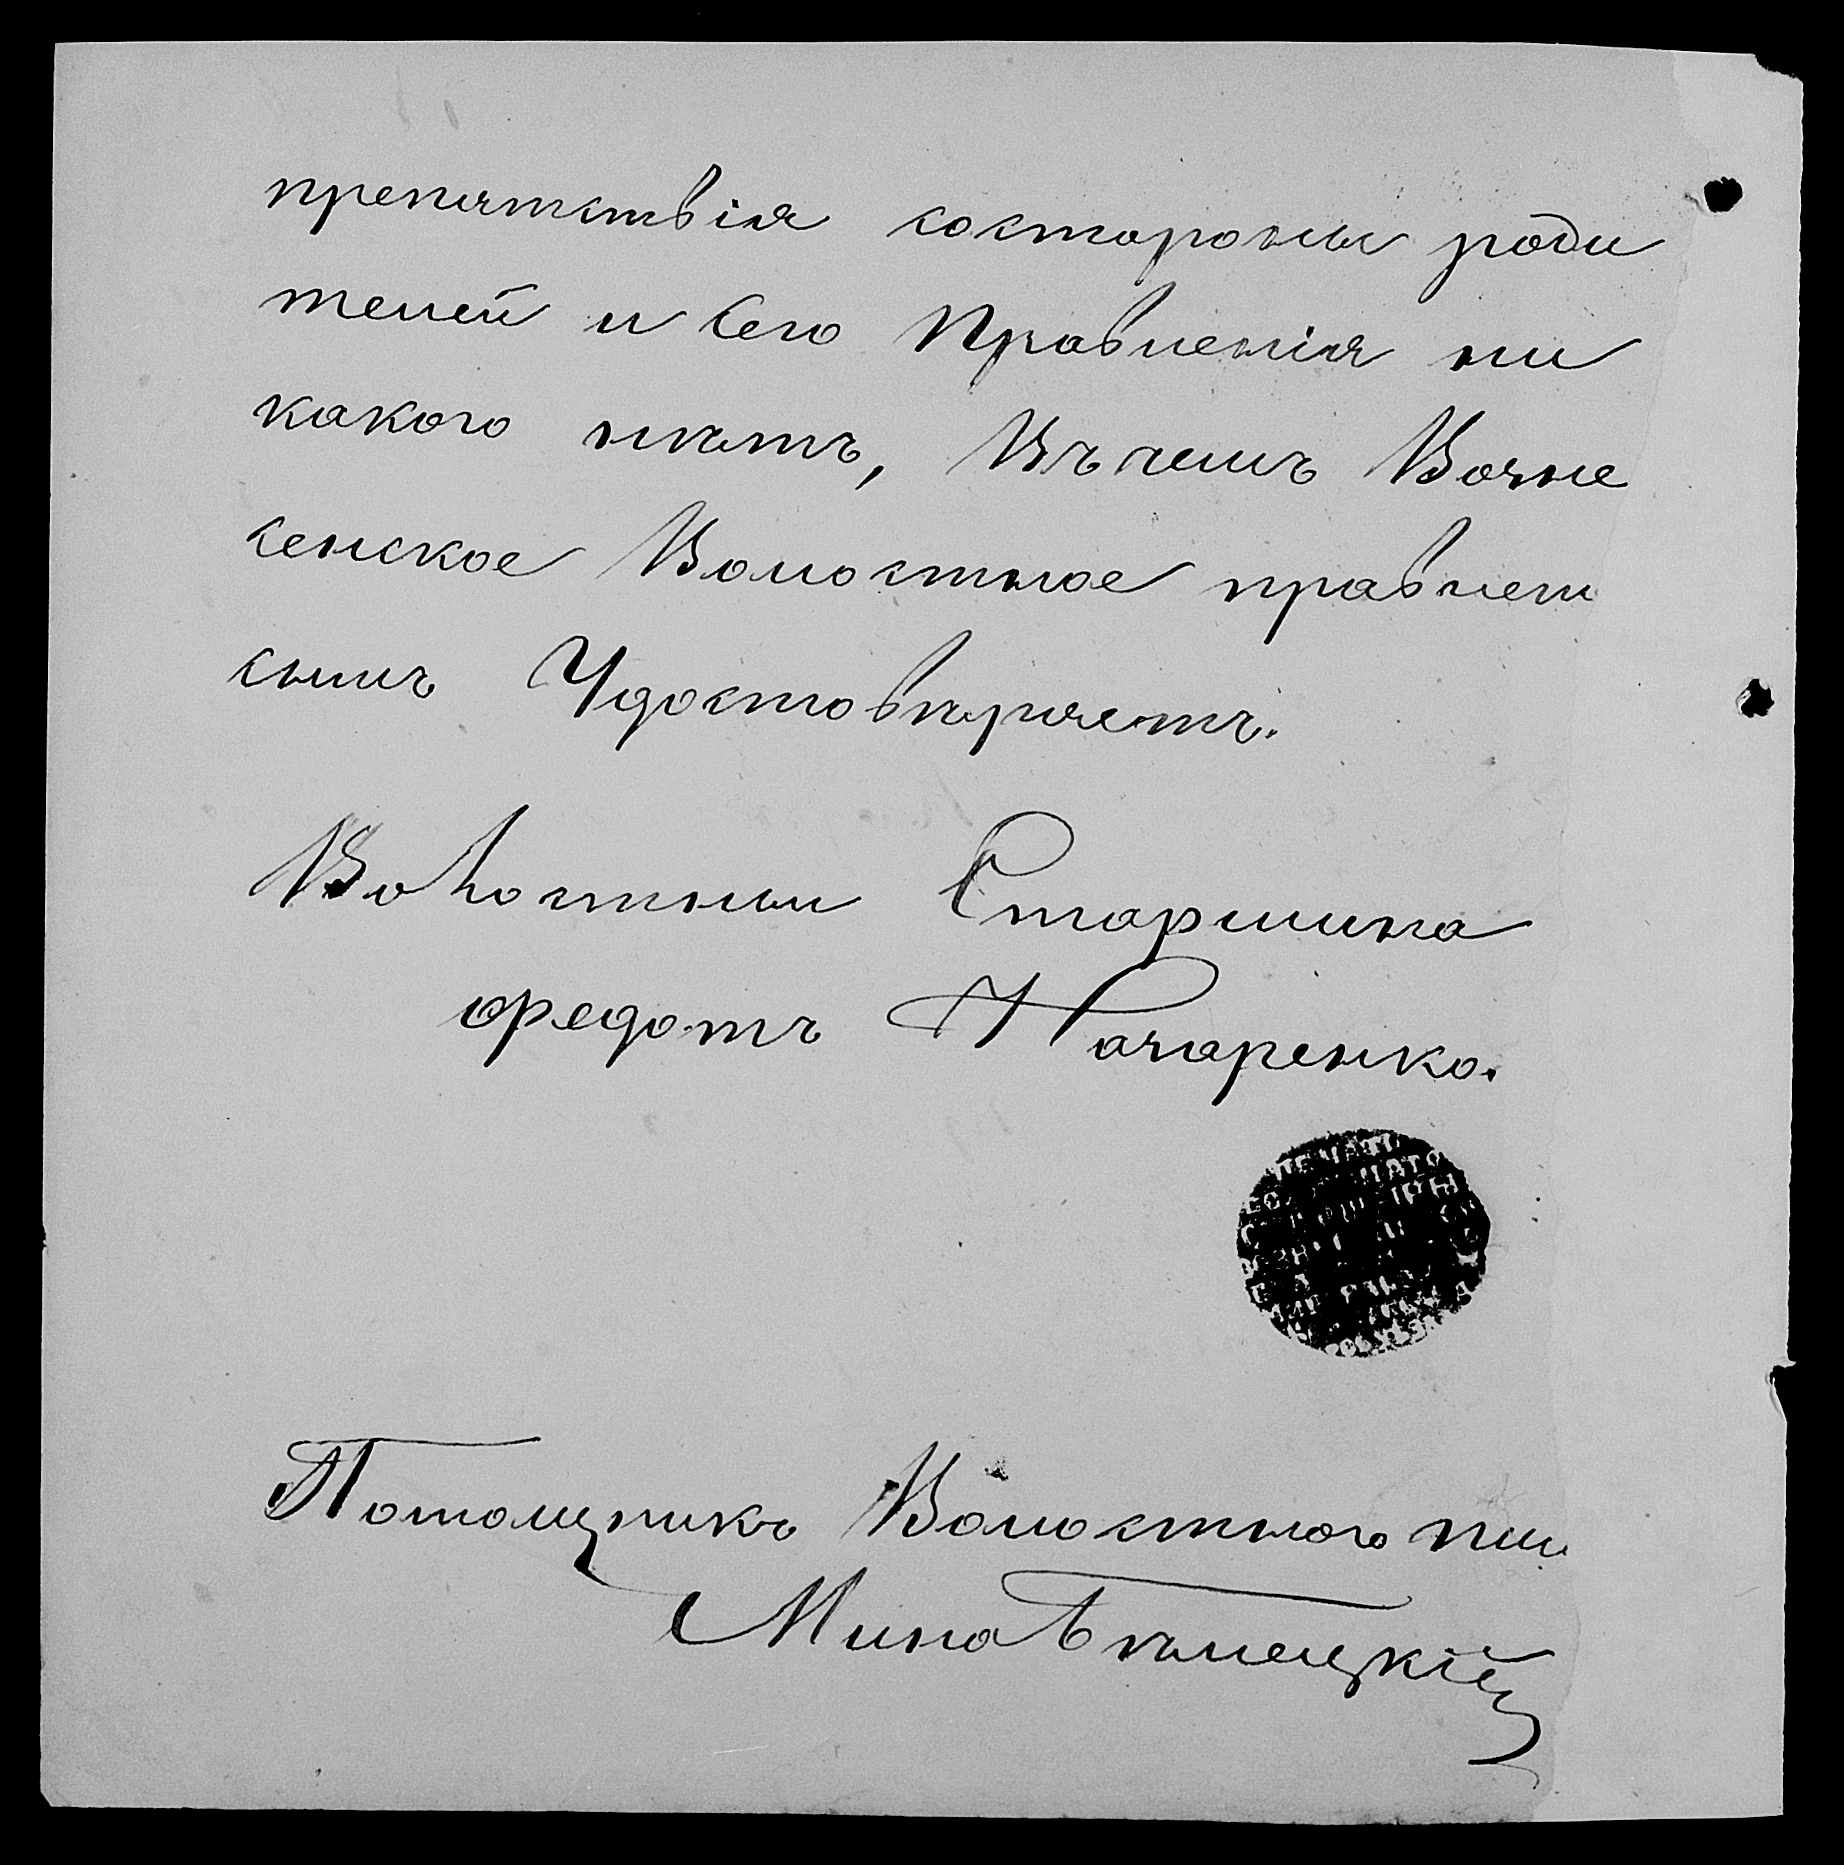 препятствія состороны роди
телей и Сего Правленія ни
какого нѣтъ, Въ чемъ Возне
сенское Волостное правлен
симъ Удостовѣряетъ.
Волостный Старшина
Федотъ Назаренко.
ПЕЧАТЬ
Помощникъ Волостного пис
Мина Бѣлецкій